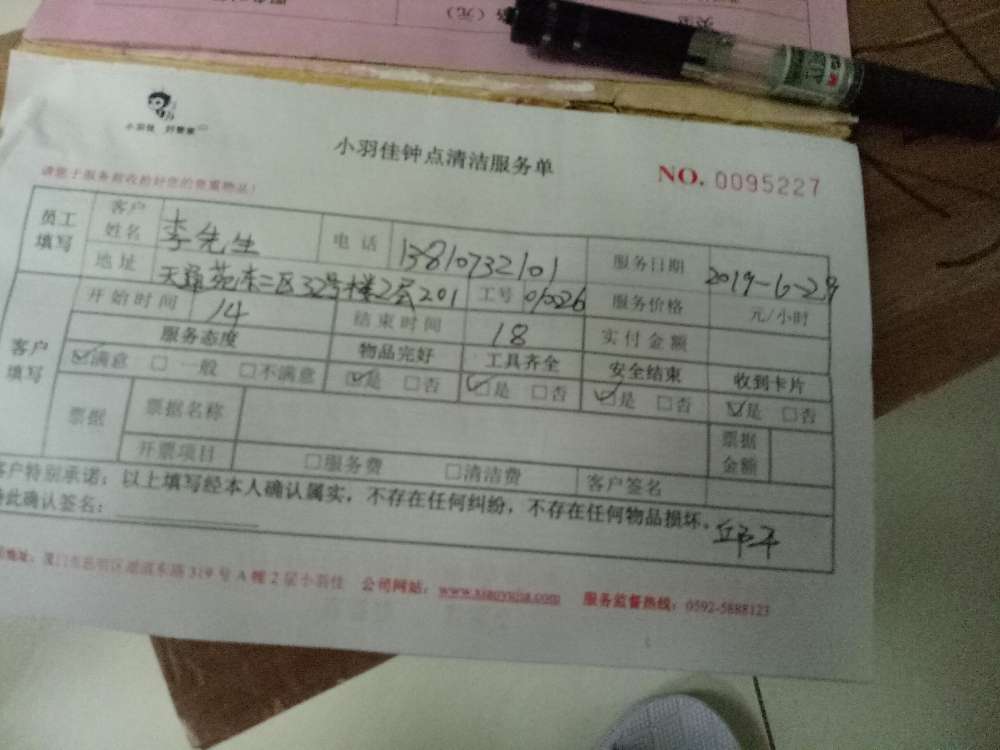 类型
（元）
小羽佳 好管家
小羽佳钟点清洁服务单
NO. 0095227
请您于服务前收拾好您的贵重物品！
员工填写 客户姓名 李先生 电话 13810732101 服务日期 2019-6-29
地址 天通苑东三区32号楼2层201 工号 服务价格 元/小时
客户填写 开始时间 14 结束时间 18 实付金额
服务态度 物品完好 工具齐全 安全结束 收到卡片
☑满意 □一般 □不满意 ☑是 □否 ☑是 □否 ☑是 □否 ☑是 □否
票据 票据名称 票据金额
开票项目 □服务费 □清洁费 客户签名
客户特别承诺：以上填写经本人确认属实，不存在任何纠纷，不存在任何物品损坏。
特此确认签名：
地址：厦门市思明区湖滨东路319号A幢2层小羽佳 公司网站：www.xiaoyujia.com 服务监督热线：0592-5888123